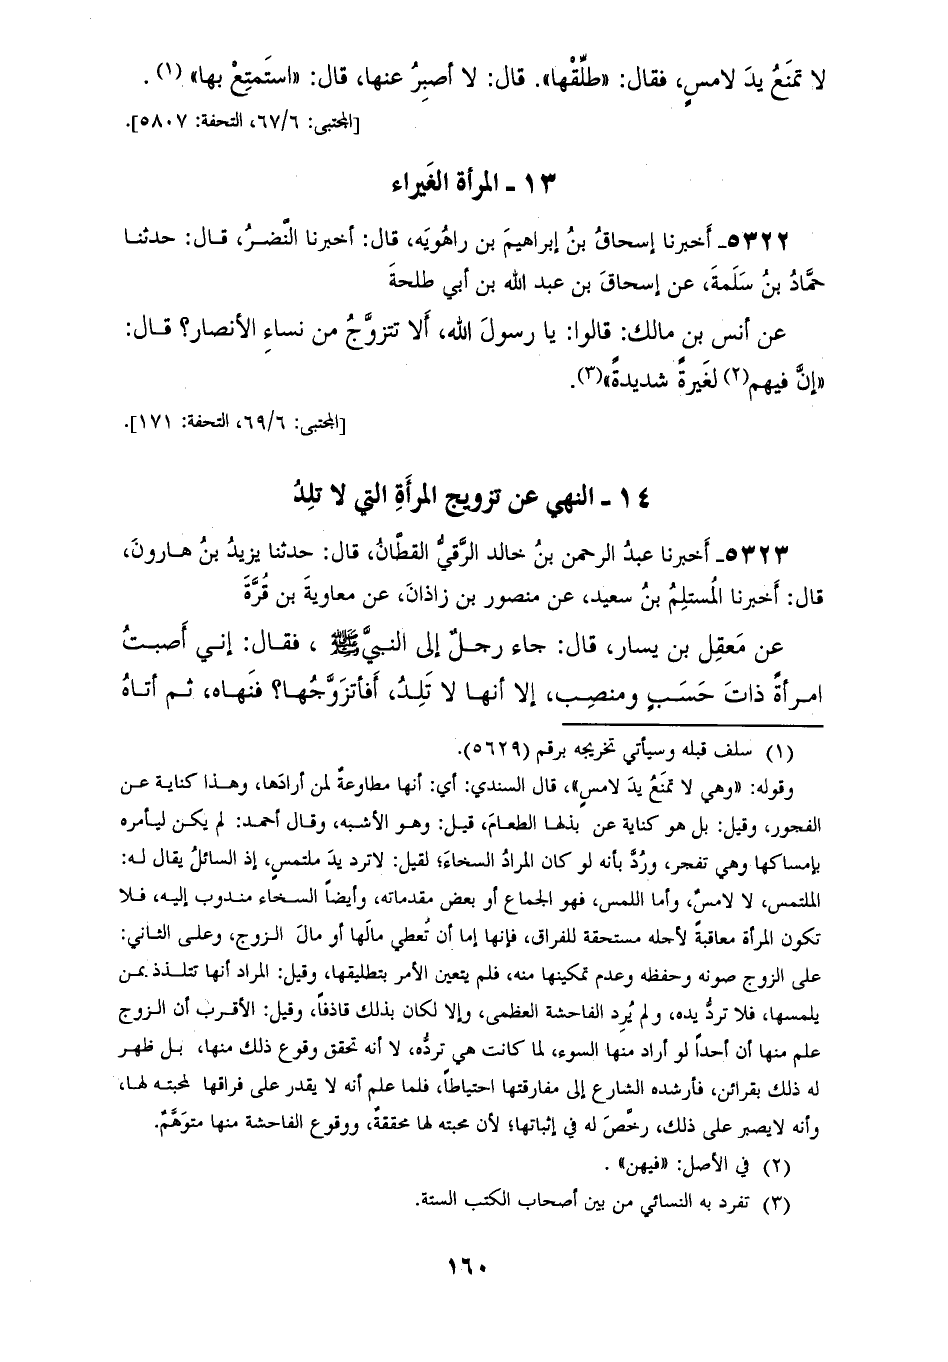 لا تمنَعُ يدَ لامسٍ، فقال: «طلِّقْها». قال: لا أصبِرُ عنها، قال: «استَمتِعْ بها» (١) .
[المجتبى: ٦/ ٦٧، التحفة: ٥٨٠٧].
١٣ - المرأة الغَيراء
٥٣٢٢- أَخبرنا إسحاقُ بنُ إبراهيمَ بن راهُويَه، قال: أخبرنا النَّضرُ، قال: حدثنا
حمَّادُ بنُ سَلَمةَ، عن إسحاقَ بن عبد الله بن أبي طلحةَ
عن أنس بن مالك: قالوا: يا رسولَ الله، أَلا تتزوَّجُ من نساءِ الأنصار؟ قال:
«إنَّ فيهم(٢) لغَيرةً شديدةً»(٣).
[المجتبى: ٦/ ٦٩، التحفة: ١٧١].
١٤ - النهي عن تزويج المرأَةِ التي لا تلِدُ
٥٣٢٣- أَخبرنا عبدُ الرحمن بنُ خالد الرَّقيُّ القطَّانُ، قال: حدثنا يزيدُ بنُ هارونَ،
قال: أَخبرنا المُستلِمُ بنُ سعيد، عن منصور بن زاذانَ، عن معاويةَ بن قُرَّةَ
عن مَعقِل بن يسار، قال: جاء رجلٌ إلى النبيِّ ﷺ ، فقال: إني أَصبتُ
امرأةً ذاتَ حَسَبٍ ومنصِبٍ، إلا أنها لا تَلِدُ، أَفأَتزوَّجُها؟ فنَهاه، ثم أتاهُ
(١) سلف قبله وسيأتي تخريجه برقم (٥٦٢٩).
وقوله: «وهي لا تمنَعُ يدَ لامسٍ»، قال السندي: أي: أنها مطاوعةٌ لمن أرادَها، وهذا كناية عن
الفجور، وقيل: بل هو كناية عن بذلها الطعامَ، قيل: وهو الأشبه، وقال أحمد: لم يكن ليأمره
بإمساكها وهي تفجر، ورُدَّ بأنه لو كان المرادُ السخاءَ؛ لقيل: لاترد يدَ ملتمسٍ، إذ السائلُ يقال له:
الملتمس، لا لامسٌ، وأما اللمس، فهو الجماع أو بعض مقدماته، وأيضاً السخاء مندوب إليه، فلا
تكون المرأة معاقبةً لأجله مستحقة للفراق، فإنها إما أن تُعطي مالَها أو مالَ الزوج، وعلى الثاني:
على الزوج صونه وحفظه وعدم تمكينها منه، فلم يتعين الأمر بتطليقها، وقيل: المراد أنها تتلذذ بمن
يلمسها، فلا تردُّ يده، ولم يُرِد الفاحشة العظمى، وإلا لكان بذلك قاذفاً، وقيل: الأقرب أن الزوج
علم منها أن أحداً لو أراد منها السوء، لما كانت هي تردُّه، لا أنه تحقق وقوع ذلك منها، بل ظهر
له ذلك بقرائن، فأرشده الشارع إلى مفارقتها احتياطاً، فلما علم أنه لا يقدر على فراقها لمحبته لها،
وأنه لايصبر على ذلك، رخَّصَ له في إثباتها؛ لأن محبته لها محققةٌ، ووقوع الفاحشة منها متوَهَّمٌ.
(٢) في الأصل: «فيهن» .
(٣) تفرد به النسائي من بين أصحاب الكتب الستة.
١٦٠